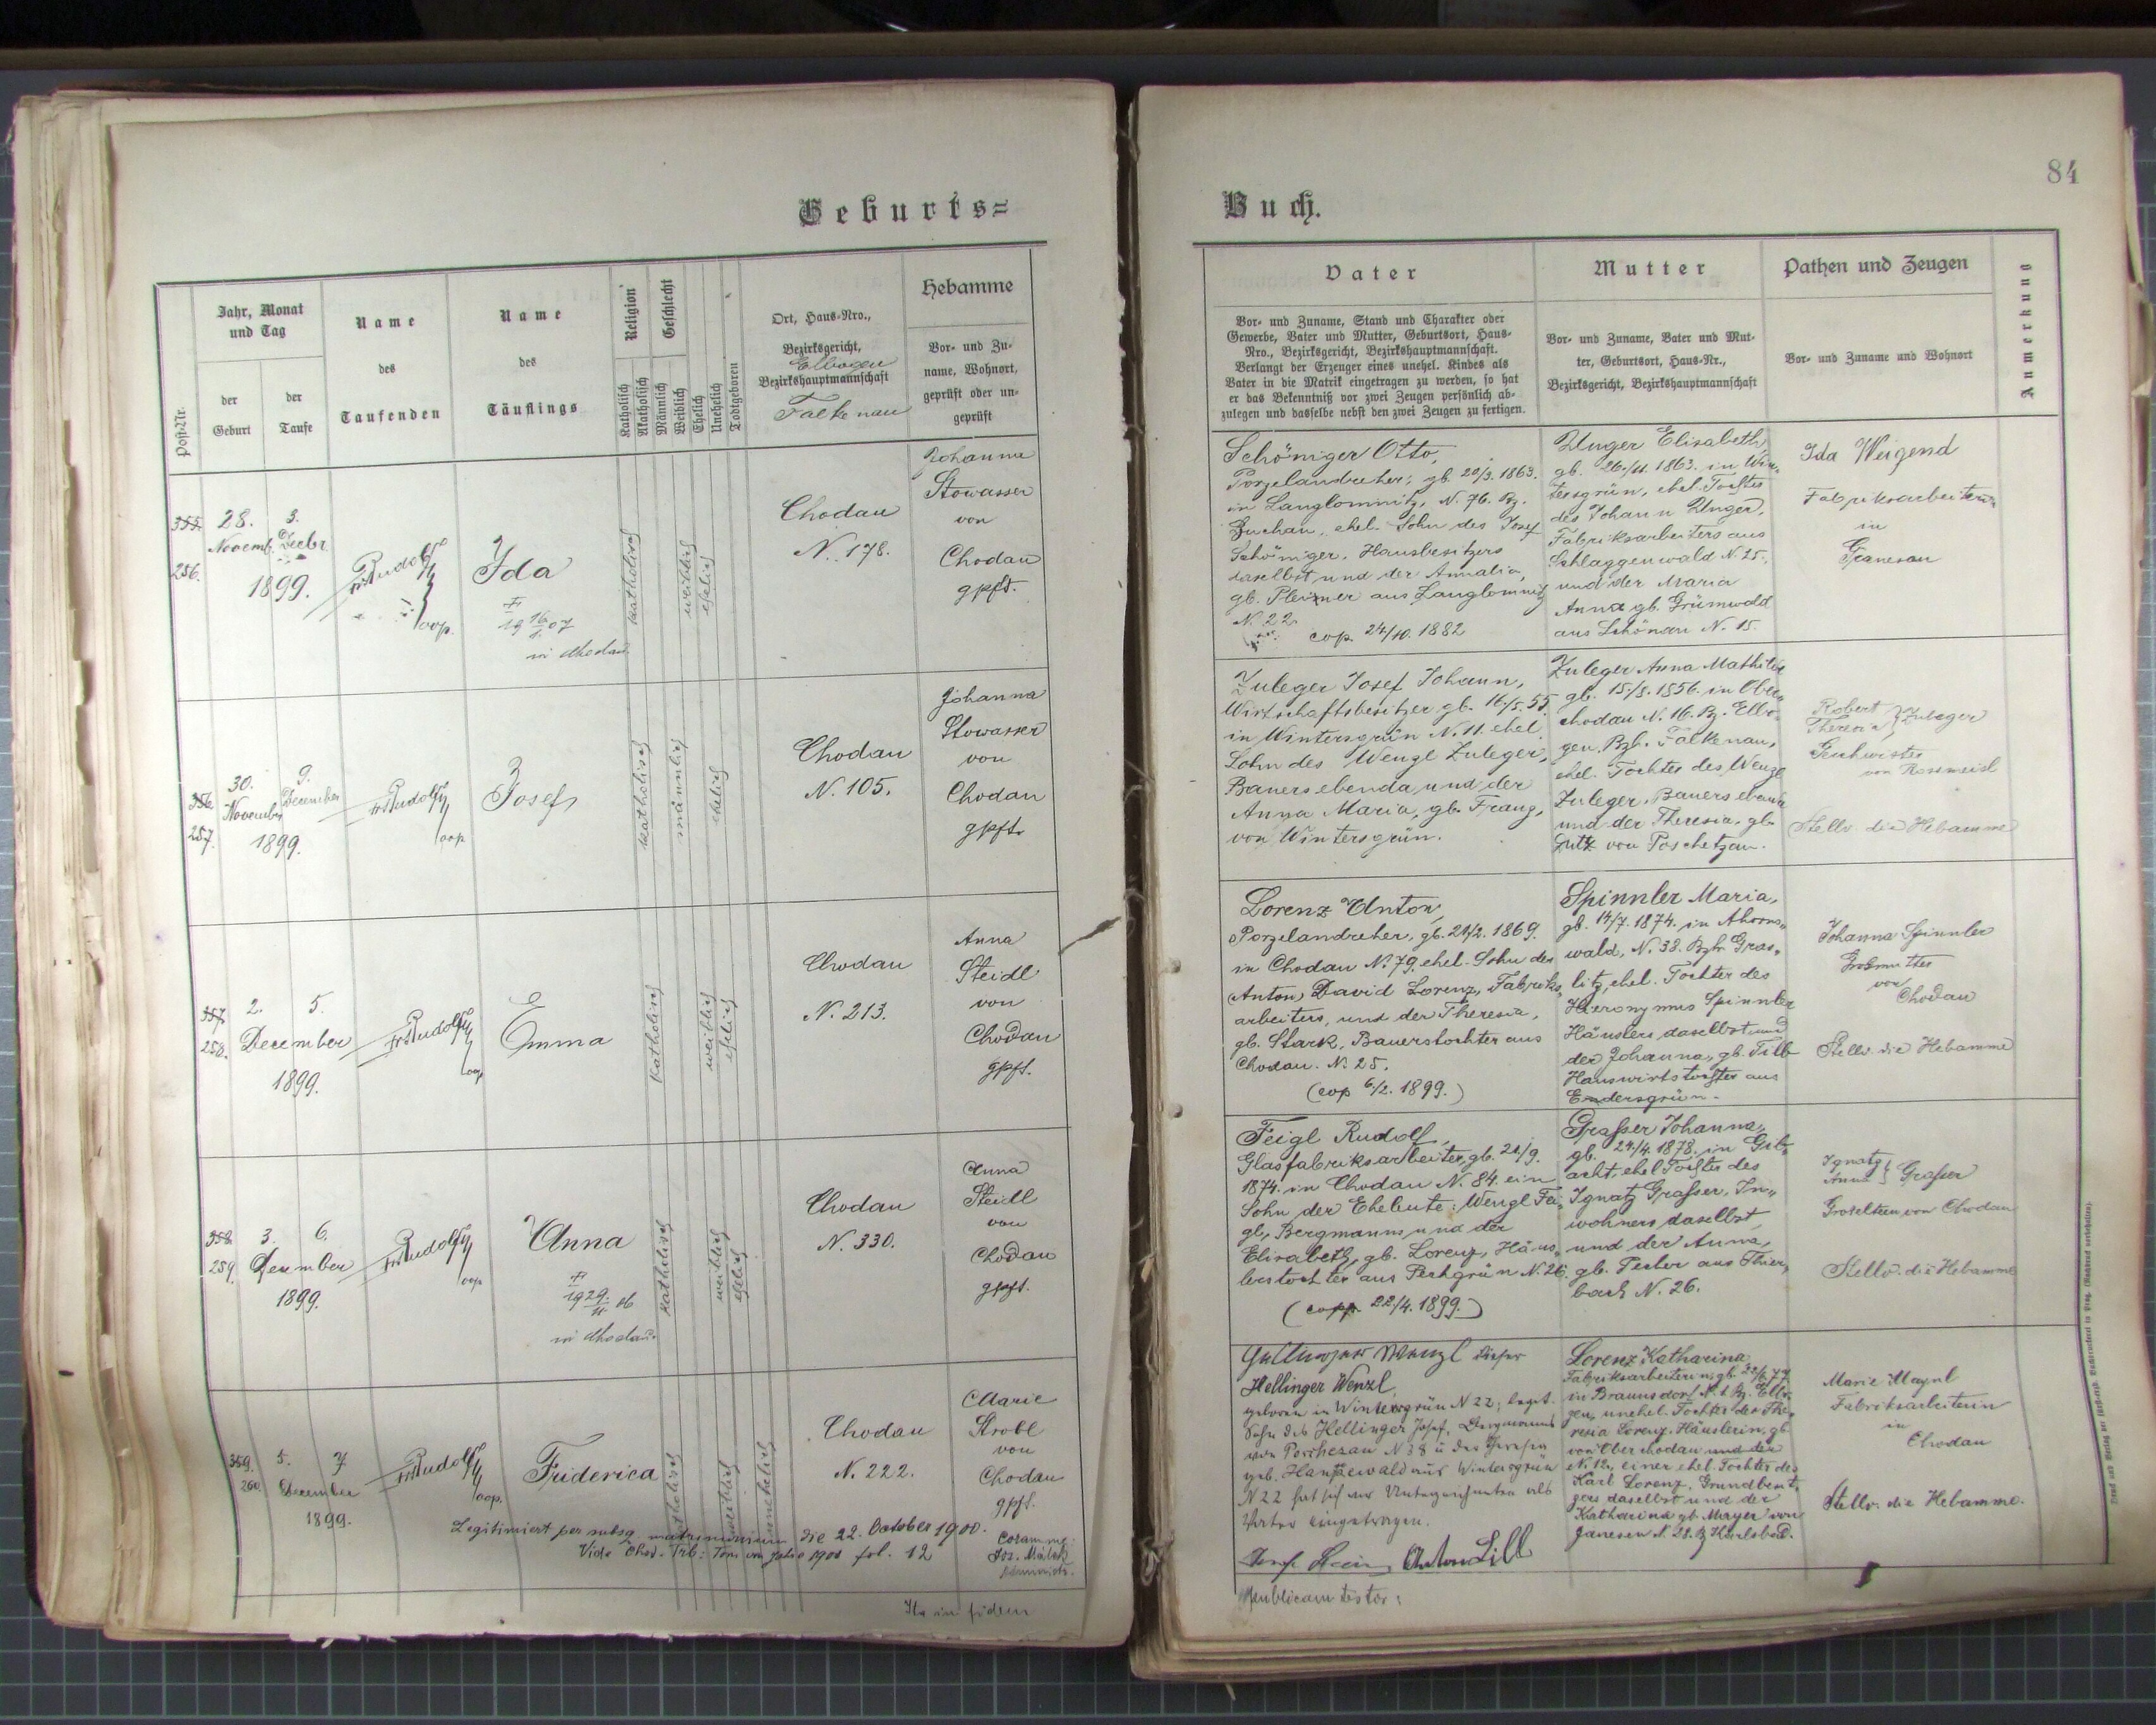 Geburts=
Jahr, Monat
und Tag
Name
des
Taufenden
Name
des
Täuflings
Religion
Geschlecht
Ort, Haus-Nro.,
Bezirksgericht,
Elbogen
Bezirkshauptmannschaft
Falkenau
Hebamme
Vor- und Zu-
name, Wohnort,
geprüft oder un-
geprüft
Post-Nr.
der
Geburt
der
Taufe
Katholisch
Akatholisch
Männlich
Weiblich
Ehelich
Unehelich
Todtgeboren
355.
256.
28.
Novemb.
3.
Decbr.
1899.
Rudolf
coop.
Ida
† 19 16/1. 07
in Chodau.
katholisch
weiblich
ehelich
Chodau
N. 178.
Johanna
Stowasser
von
Chodau
gpft.
356.
257.
30.
November
9.
December
1899.
Rudolf
coop
Josef
katholisch
männlich
ehelich
Chodau
N. 105.
Johanna
Stowasser
von
Chodau
gpft.
357.
258.
2. 5.
December
1899.
Rudolf
coop
Emma
katholisch
weiblich
ehelich
Chodau
N. 213.
Anna
Steidl
von
Chodau
gpft.
358.
259.
3. 6.
December
1899.
Rudolf
coop
Anna
† 1929.
in Chodau.
katholisch
weiblich
ehelich
Chodau
N. 330.
Anna
Steidl
von
Chodau
gpft.
359.
260.
5. 7
December
1899.
Rudolf
coop.
Friderica
katholisch
weiblich
unehelich
Chodau
N. 222.
Marie
Strobl
von
Chodau
gpft.
Legitimiert per subsq. matrimonium die 22. October 1900.
Vide Chod. Trb: Tom fol. 12
Coram me:
Ita in fidem
84
Buch.
Vater
Vor- und Zuname, Stand und Charakter oder
Gewerbe, Vater und Mutter, Geburtsort, Haus-
Nro., Bezirksgericht, Bezirkshauptmannschaft.
Verlangt der Erzeuger eines unehel. Kindes als
Vater in die Matrik eingetragen zu werden, so hat
er das Bekenntniß vor zwei Zeugen persönlich ab-
zulegen und dasselbe nebst den zwei Zeugen zu fertigen.
Mutter
Vor- und Zuname, Vater und Mut-
ter, Geburtsort, Haus-Nr.,
Bezirksgericht, Bezirkshauptmannschaft
Pathen und Zeugen
Vor- und Zuname und Wohnort
Anmerkung
Schöniger Otto,
Porzelandreher, gb. 20/3. 1863.
in Langlomnitz, N. 76. Bz.
Buchau, ehel. Sohn des Josef
Schöniger, Hausbesitzers
daselbst, und der Annalia,
gb. Pleizner aus Langlomnitz
N. 22.
cop. 24/10. 1882
Unger Elisabeth,
gb. 26./11. 1863. in Win-
tersgrün, ehel. Tochter
des Johann Unger,
Fabriksarbeiters aus
Schlaggenwald N. 25.,
und der Maria
Anna gb. Grünwald
aus Schönau N. 15.
Ida Weigend
Fabriksarbeiterin
in
Granesau
Zuleger Josef Johann,
Wirtschaftsbesitzer gb. 16/5. 55.
in Wintersgrün N. 11. ehel.
Sohn des Wenzl Zuleger,
Bauers ebenda und der
Anna Maria, gb. Franz,
von Wintersgrün.
Zuleger Anna Mathilde
gb. 15./8. 1856. in Ober-
chodau N. 16. Bz. Elbo-
gen, Bzh. Falkenau,
ehel. Tochter des Wenzl
Zuleger, Bauers ebenda
und der Theresia, gb.
Lutz von Poschetzau.
Robert } Zuleger
Theresia
Geschwister
von Rossmeisl
Stellv. die Hebamme
Lorenz Anton,
Porzelandreher, gb. 21/2. 1869.
in Chodau N. 79. ehel. Sohn des
(Anton) David Lorenz, Fabriks-
arbeiters, und der Theresia,
gb. Stark, Bauerstochter aus
Chodau. N. 25.
(cop 6/2. 1899.)
Spinnler Maria,
gb. 14/7. 1874. in Ahorns-
wald, N. 38. Bzh. Gras-
litz, ehel. Tochter des
Hieronymus Spinnler
Häuslers daselbst und
der Johanna, gb. Tilb
Hauswirtstochter aus
Endersgrün.
Johanna Spinnler
Großmutter
von
Chodau
Stellv. die Hebamme
Feigl Rudolf,
Glasfabriksarbeiter, gb. 21/9.
1874. in Chodau N. 84. ein
Sohn der Eheleute: Wenzl Fei-
gl, Bergmanns und der
Elisabeth, gb. Lorenz, Häus-
lerstochter aus Pechgrün N. 26.
(copp. 22/4. 1899.)
Grasser Johanna,
gb. 24/4. 1878. in Gut-
acht, ehel. Tochter des
Ignatz Grasser, In-
wohners daselbst,
und der Anna,
gb. Fester aus Thier-
bach N. 26.
Ignatz } Grasser
Anna
Großeltern von Chodau
Stellv. die Hebamme
Hellinger Wenzl,
geboren in Wintersgrün N 22;
Sohn des Hellinger Josef, Bergmanns
von Poschezau N 38 u der Theresia
geb. aus Wintersgrün
N 22 hat sich vor Unterzeichneten als
Vater eingetragen.
Anton Lill
Lorenz Katharina
Fabriksarbeiterin, gb. 22/6. 77.
in Braunsdorf N. 1. Bz. Elbo-
gen, unehel. Tochter der The-
resia Lorenz, Häuslerin, gb.
von Oberchodau und der
N. 12., einer ehel. Tochter des
Karl Lorenz, Grundbesit-
zers daselbst und der
Katharina gb. Mayer von
Janesen N. 28. Bz Karlsbad.
Marie Maynl
Fabriksarbeiterin
in
Chodau
Stellv. die Hebamme.